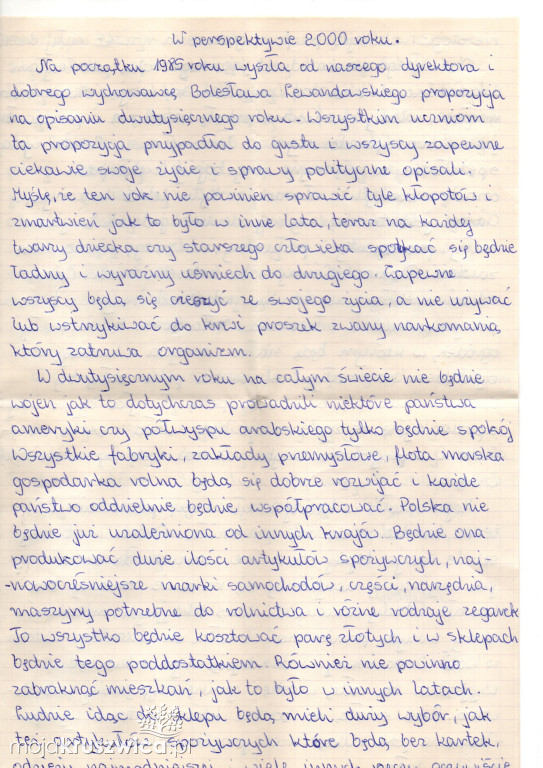 W perspektywie 2000 roku.
Na początku 1985 roku wyszła od naszego dyrektora i
dobrego wychowawcę Bolesława Lewandowskiego propozycja
na opisaniu dwutysięcznego roku. Wszystkim uczniom
ta propozycja przypadła do gustu i wszyscy zapewne
ciekawie swoje życie i sprawy polityczne opisali.
Myślę, że ten rok nie powinien sprawić tyle kłopotów i
zmartwień jak to było w inne lata, teraz na każdej
twarzy dziecka czy starszego człowieka spotykać się będzie
ładny i wyraźny uśmiech do drugiego. Zapewne
wszyscy będą się cieszyć ze swojego życia, a nie używać
lub wstrzykiwać do krwi proszek zwany narkomanią,
który zatruwa organizm.
W dwutysięcznym roku na całym świecie nie będzie
wojen jak to dotychczas prowadzili niektóre państwa
ameryki czy półwyspu arabskiego tylko będzie spokój
Wszystkie fabryki, zakłady przemysłowe, flota morska
gospodarka rolna będą się dobrze rozwijać i każde
państwo oddzielnie będzie współpracować. Polska nie
będzie już uzależniona od innych krajów. Będzie ona
produkować duże ilości artykułów spożywczych, naj-
-nowocześniejsze marki samochodów, części, narzędzia,
maszyny potrzebne do rolnictwa i różne rodzaje zegarek
To wszystko będzie kosztować parę złotych i w sklepach
będzie tego poddostatkiem. Również nie powinno
zabraknąć mieszkań, jak to było w innych latach.
Ludzie idąc do sklepu będą mieli duży wybór, jak
też artykułów spożywczych które będą bez kartek,
odzieży najmodniejszej i wiele innych rzeczy oczywiście
mojakruszwica.pl